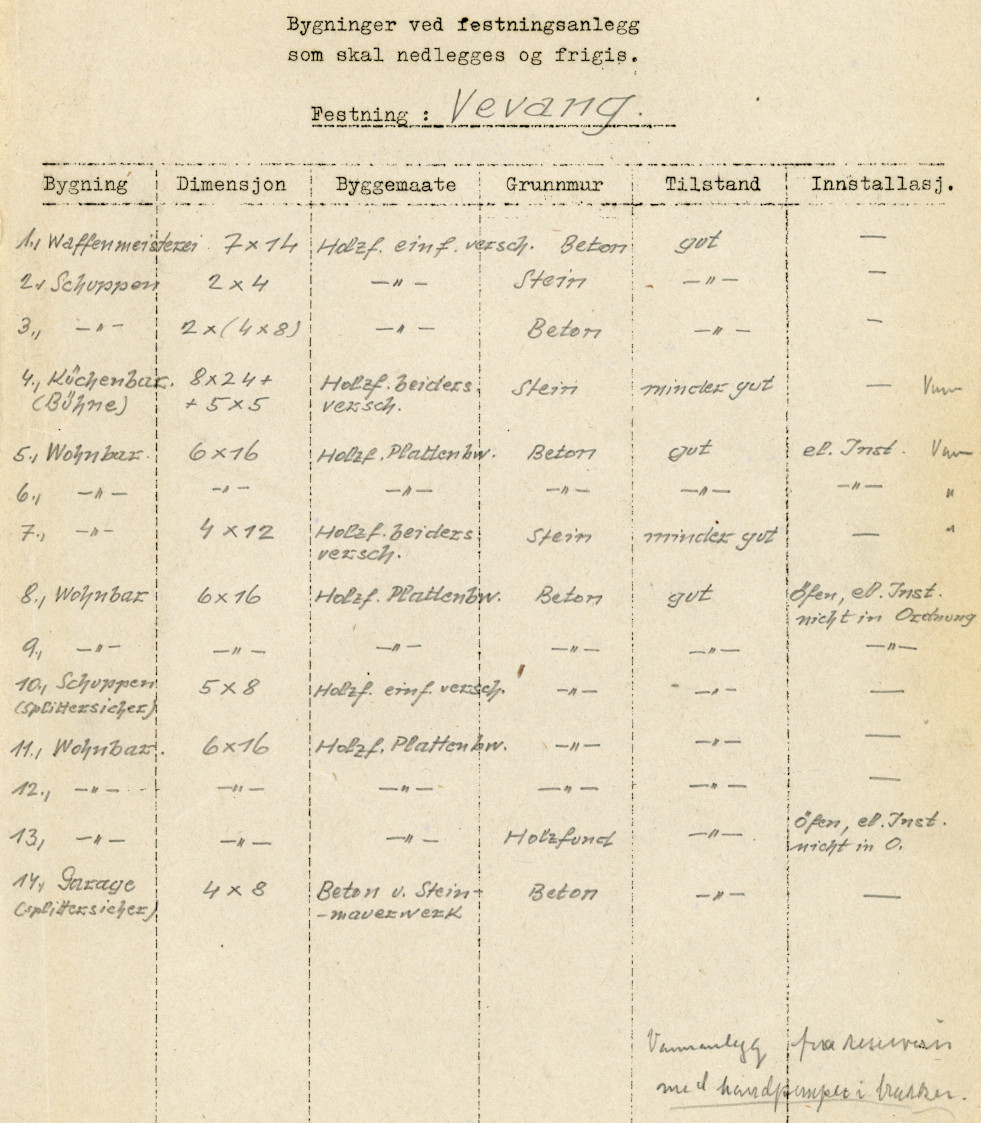 Bygninger ved festningsanlegg
som skal nedlegges og frigis.
Festning : Vevang.
Bygning Dimensjon Byggemaate Grunnmur Tilstand Innstallasj.
1., Waffenmeisterei 7 x 14 Holzf. einf. versch. Beton gut —
2., Schuppen 2 x 4 —"— Stein —"— —
3., —"— 2 x (4 x 8) —"— Beton —"— —
4., Küchenbar. 8 x 24 + Holzf. beiders. Stein minder gut — Vann
(Bühne) + 5 x 5 versch.
5., Wohnbar. 6 x 16 Holzf. Plattenbw. Beton gut el. Inst. Vann
6., —"— —"— —"— —"— —"— —"— "
7., —"— 4 x 12 Holzf. beiders Stein minder gut — "
versch.
8., Wohnbar 6 x 16 Holzf. Plattenbw. Beton gut Öfen, el. Inst.
nicht in Ordnung
9., —"— —"— —"— —"— —"— —"—
10., Schuppen 5 x 8 Holzf. einf. versch. —"— —"— —
(splittersicher)
11., Wohnbar. 6 x 16 Holzf. Plattenbw. —"— —"— —
12., —"— —"— —"— —"— —"— —
13, —"— —"— —"— Holzfund —"— Öfen, el. Inst.
nicht in O.
14., Garage 4 x 8 Beton u. Stein- Beton —"— —
(splittersicher) -mauerwerk
Vannanlegg fra reservoir
med handpumper i brakker.